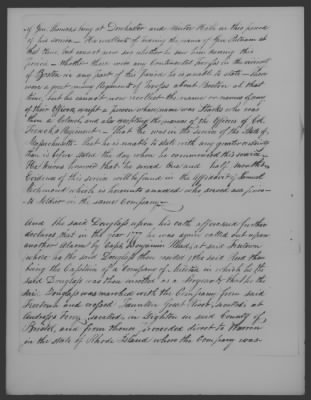 of Gen Thomas being at Dorchester and Winter Hill in this period
of his service. He recollects of hearing the name of Gen Putnam at
that time, but cannot now say whether he saw him during this
period. Whether there were any Continental troops in the vicinity
of Boston in any part of this period he is unable to state — there
were a great many Regiments of troops about Boston at that
time, but he cannot now recollect the names or name of any
of their Officers except a person whose name was Starks who was
then a Colonel, and also excepting the names of the Officers of Col
French's Regiment — That he was in the service of the State of
Massachusetts That he is unable to state with any greater certainty
than is before stated the day when he commenced this service
He thinks however that he served two and half months
Evidence of this service will be found in the affidavit of Samuel
Richmond which is hereunto annexed who served as a fellow
soldier in the same Company
And the said Douglass upon his oath aforesaid further
declares that in the year 1777 he was again called out upon
another alarm by Capt Benjamin Read, at said Freetown
where he the said Douglass then resided & the said Read then
being the Captain of a Company of Militia in which he the
said Douglass was then enrolled as a Sergeant that he the
said Douglass was marched with the Company from said
Freetown and crossed Taunton Great River, so called, at
Andros's Ferry, so called, in Dighton in said County of
Bristol, and from thence proceeded direct to Warren
in the State of Rhode Island where the Company was